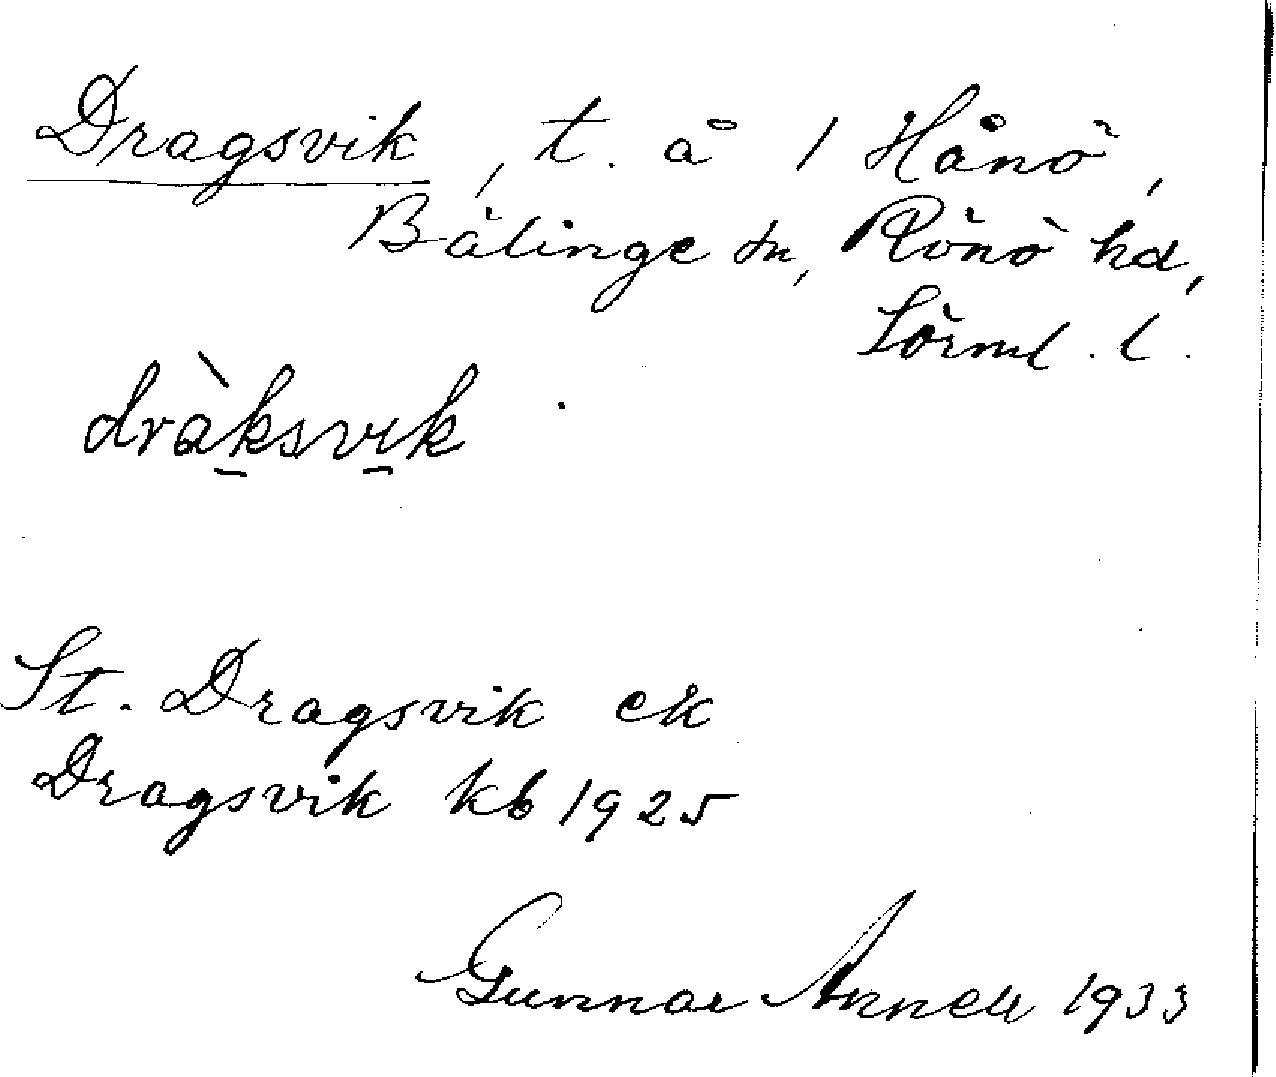 Dragsvik, t. å 1 Hånö,
Bälinge sn, Rönö hd,
Sörml. l.
dràksvik
St. Dragsvik ek
Dragsvik kb 1925
Gunnar 1933